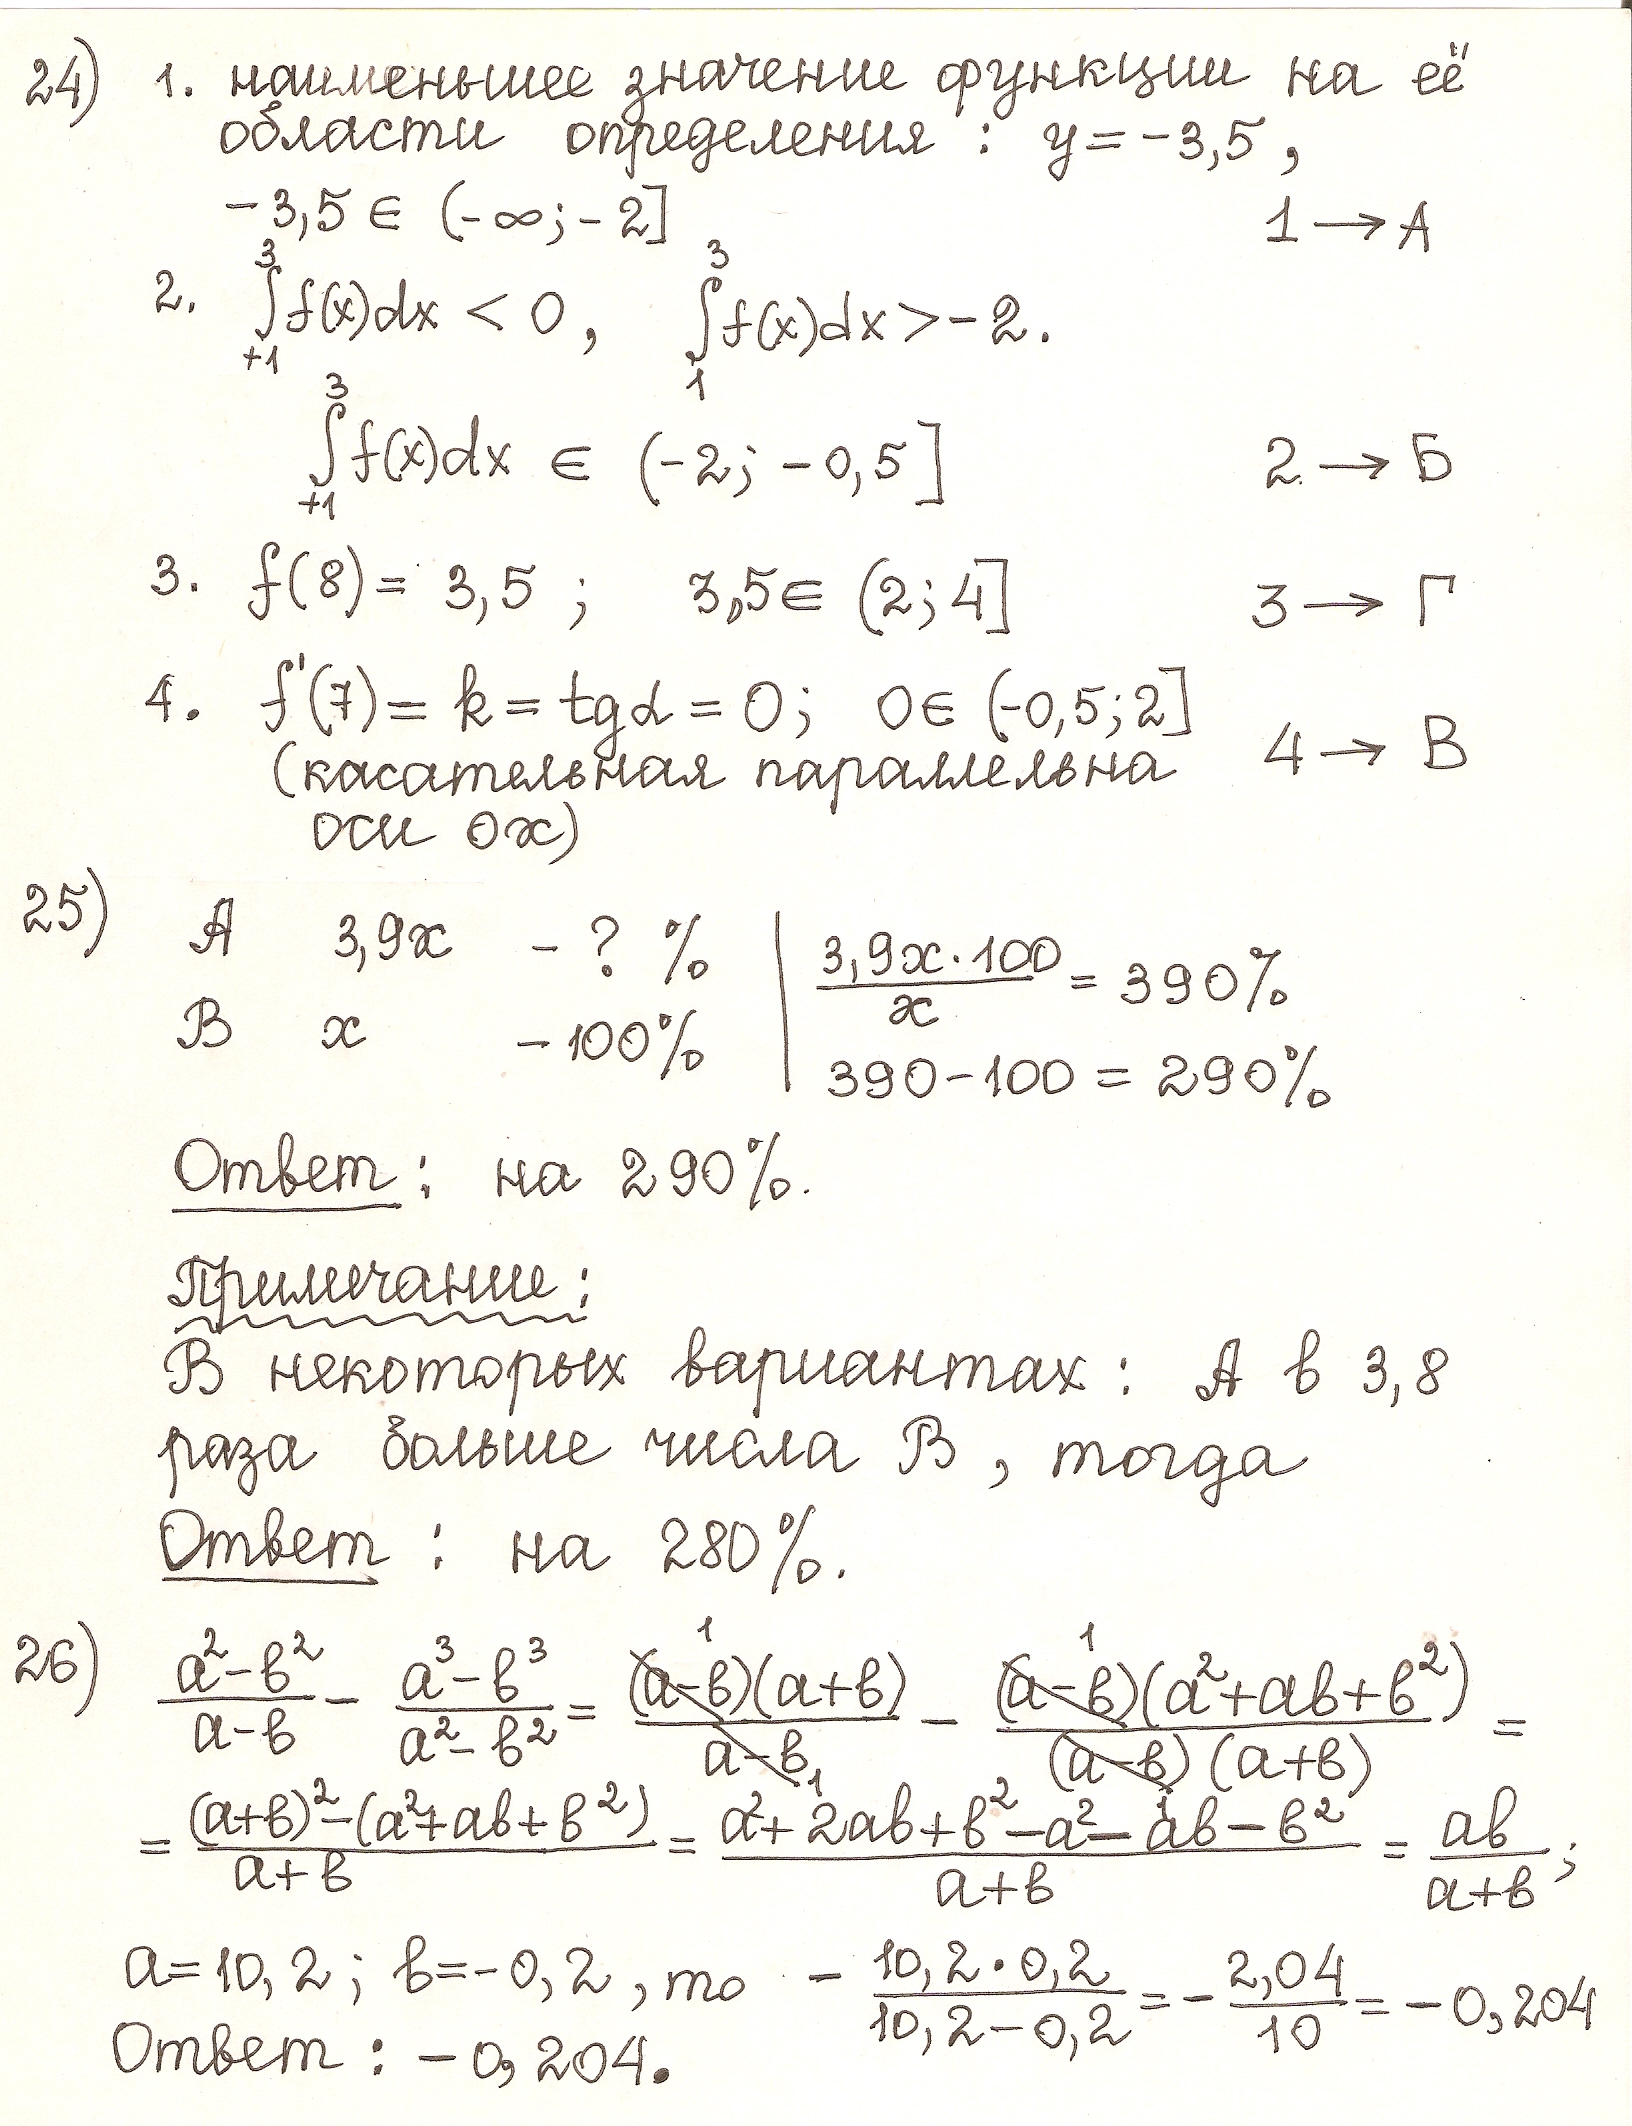 24) 1. наименьшее значение функции на её
области определения : y = -3,5 ,
-3,5 ∈ (-∞; -2]   1 → А
2. ∫₊₁³ f(x)dx < 0 , ∫₁³ f(x)dx > -2.
∫₊₁³ f(x)dx ∈ (-2; -0,5]   2. → Б
3. f(8) = 3,5 ; 3,5 ∈ (2; 4]   3 → Г
4. f'(7) = k = tgα = 0; 0 ∈ (-0,5; 2]
(касательная параллельна   4 → В
оси ox)
25) A 3,9x - ? % | 3,9x·100/x = 390%
B x - 100% | 390 - 100 = 290%
Ответ : на 290%.
Примечание :
В некоторых вариантах : А в 3,8
раза больше числа В , тогда
Ответ : на 280%.
26) (a²-b²)/(a-b) - (a³-b³)/(a²-b²) = (a-b)¹(a+b)/(a-b₁) - (a-b)¹(a²+ab+b²)/((a-b)₁(a+b)) =
= ((a+b)²-(a²+ab+b²))/(a+b) = (a²+2ab+b²-a²-ab-b²)/(a+b) = ab/(a+b) ;
a=10,2 ; b=-0,2 , то - (10,2·0,2)/(10,2-0,2) = - 2,04/10 = -0,204
Ответ : -0,204.